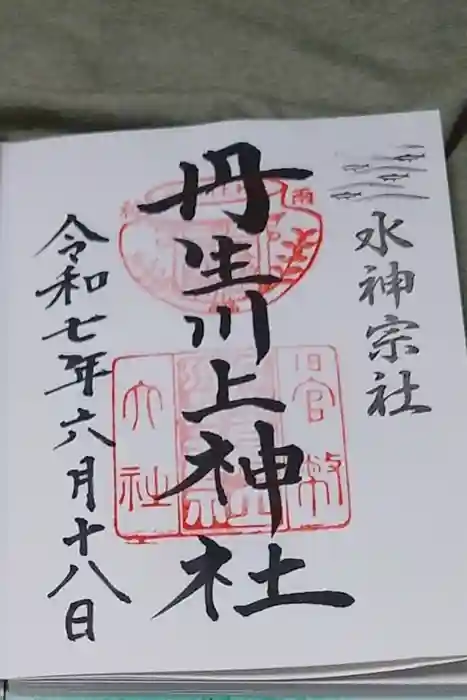 水神宗社
丹生川上神社
令和七年六月十八日
官幣
大社
雨